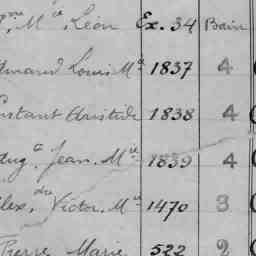 Mᵉˡ Léon Ex. 34 Bain
Louis Mᵉˡ 1837 4
Constant Aristide 1838 4
Aug. Jean, Mⁱᵉ 1839 4
Alex, Victor, Mⁱᵉ 1470 3
Pierre Marie 522 2